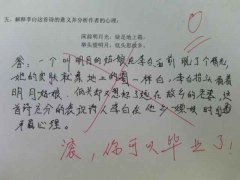 五、解释李白这首诗的意义并分析作者的心理:
床前明月光,疑是地上霜。
举头望明月,低头思故乡。
答:一个叫明月的姑娘在李白面前脱了个精光,
她的皮肤就像地上的霜一样白,李白抬头看着明
月姑娘,低头却又想起了远在故乡的老婆,这
首诗充分的表现诗人李白在他乡
矛盾心理。
滚,你可以毕业了!